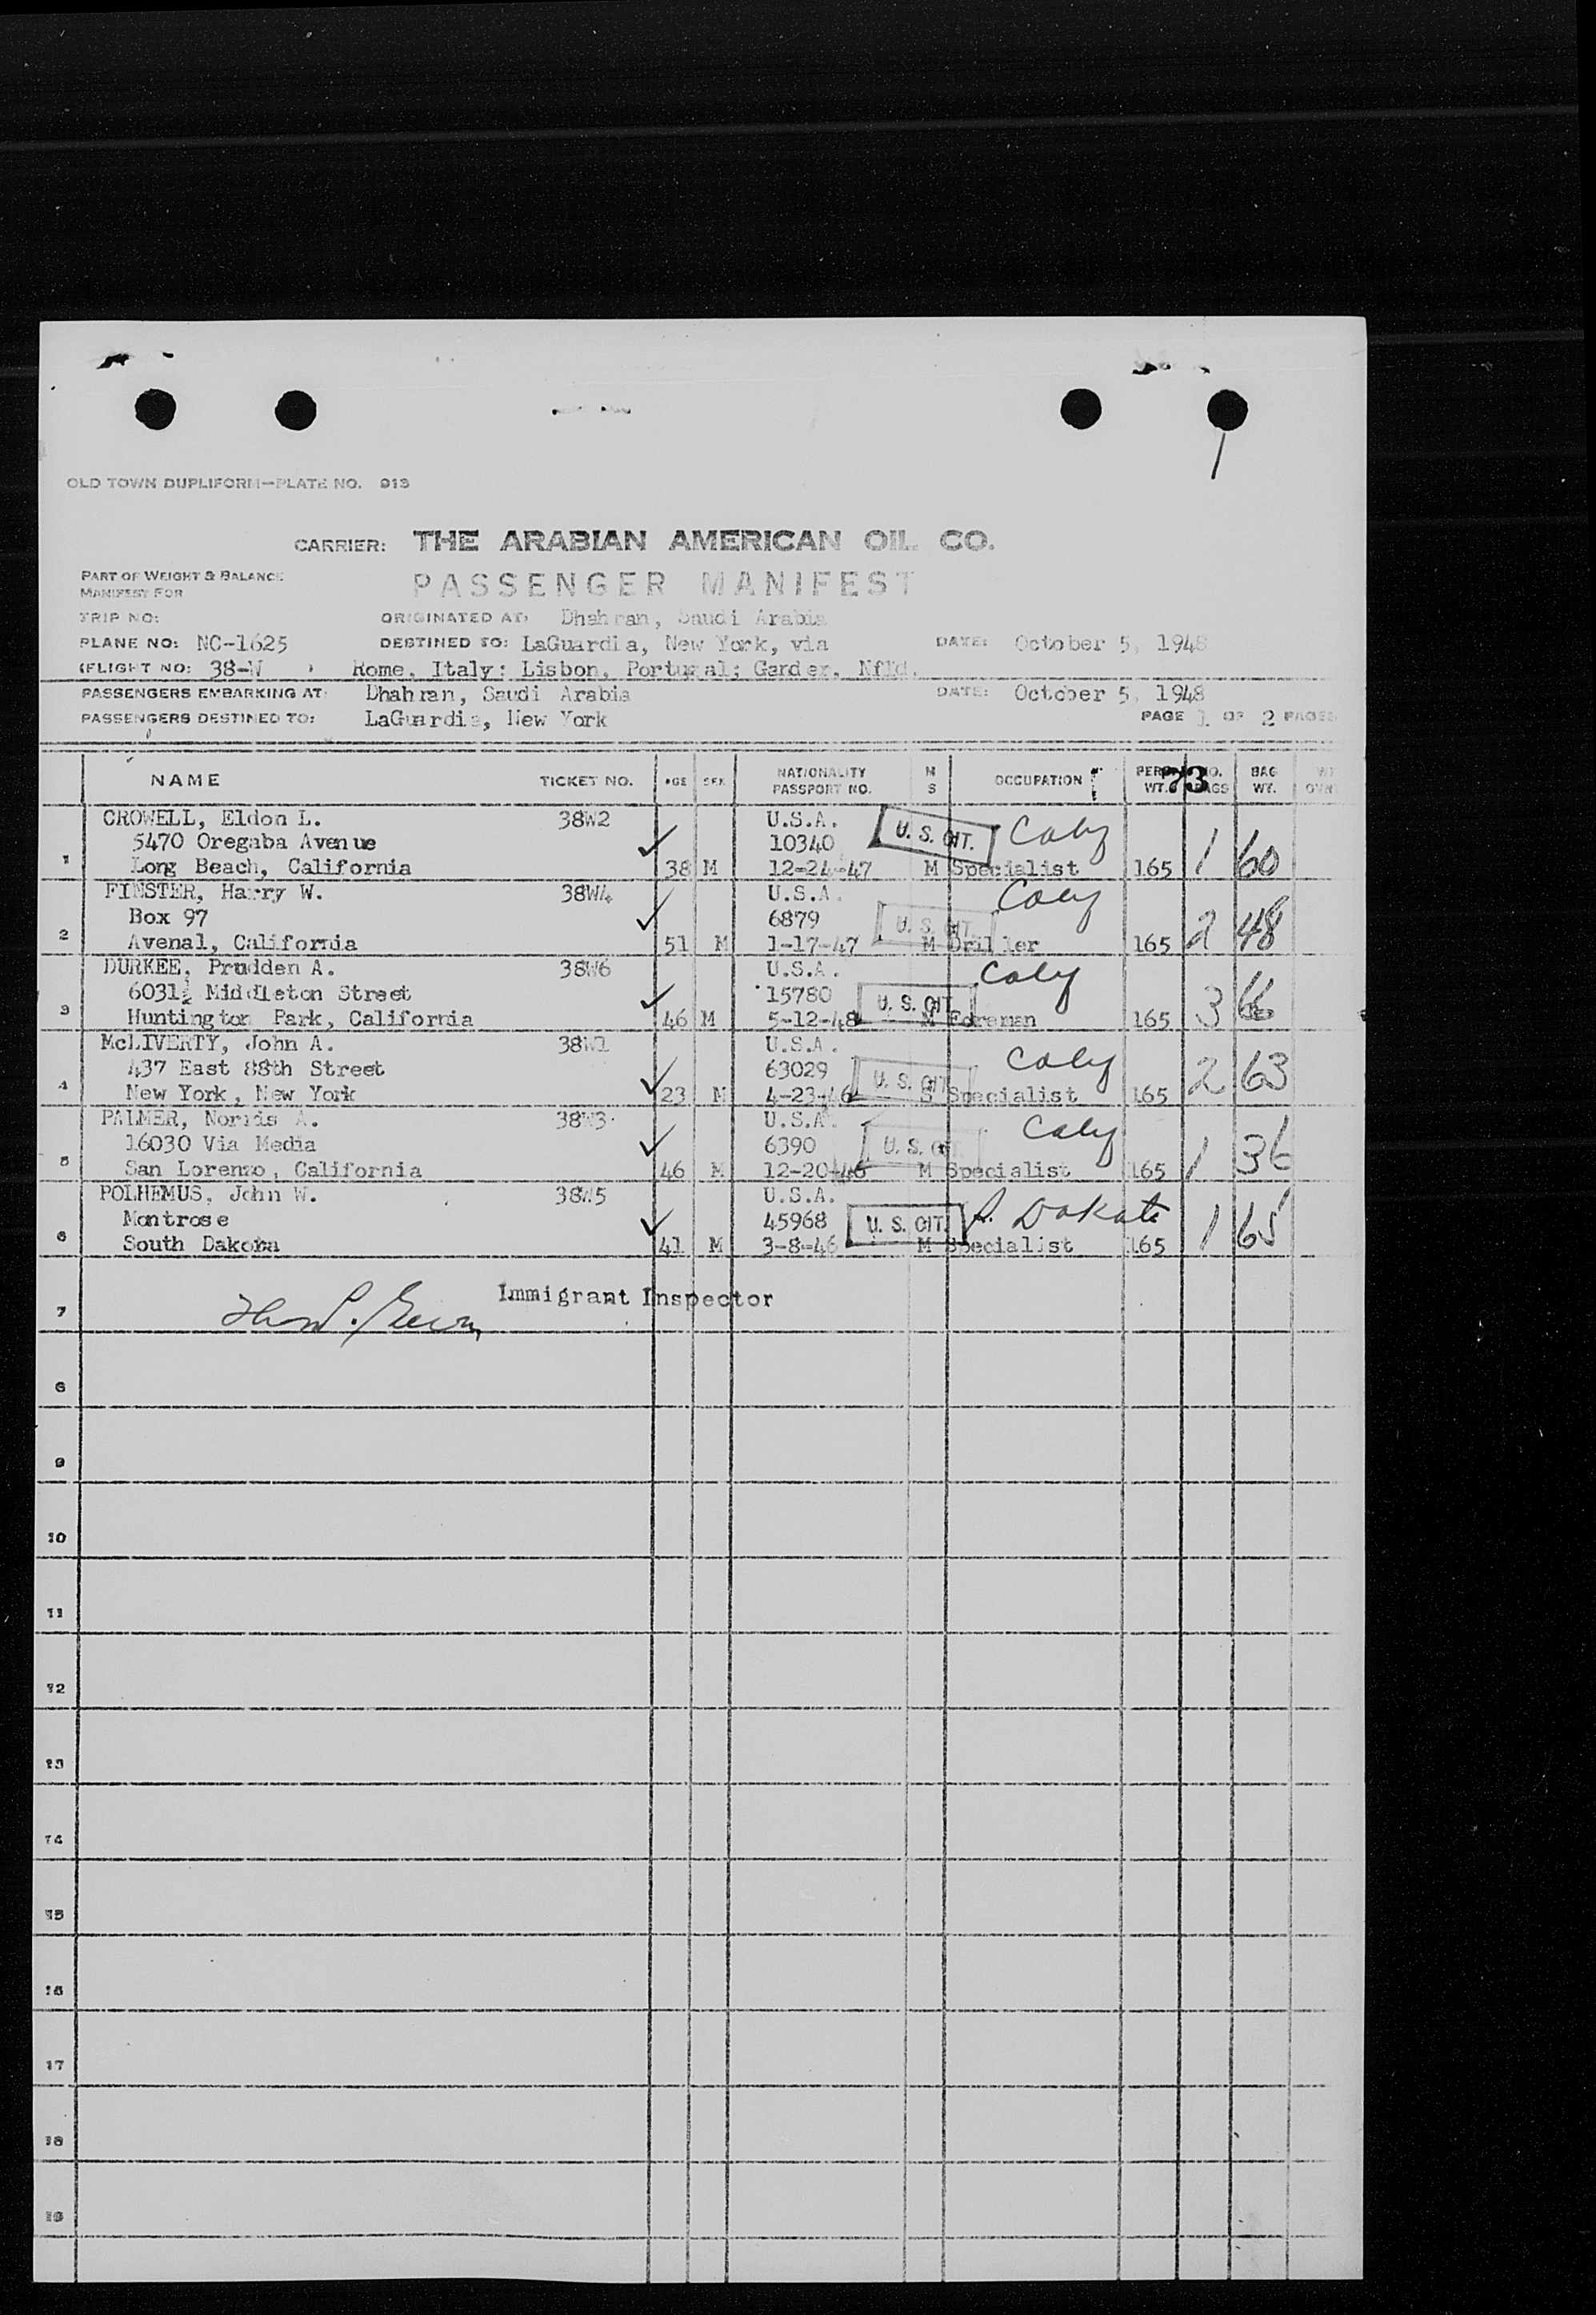 OLD TOWN DUPLIFORM—PLATE NO. 913
CARRIER: THE ARABIAN AMERICAN OIL CO.
PART OF WEIGHT & BALANCE
MANIFEST FOR
PASSENGER MANIFEST
TRIP NO: ORIGINATED AT: Dhahran, Saudi Arabia
PLANE NO: NC-1625 DESTINED TO: LaGuardia, New York, via DATE: October 5, 1948
FLIGHT NO: 38-W Rome, Italy; Lisbon, Portugal; Gander, Nfld.
PASSENGERS EMBARKING AT: Dhahran, Saudi Arabia DATE: October 5, 1948
PASSENGERS DESTINED TO: LaGuardia, New York PAGE 1 OF 2 PAGES
73
NAME TICKET NO. AGE SEX NATIONALITY PASSPORT NO. M S OCCUPATION PERS. WT. NO. BAGS BAG WT.
CROWELL, Eldon L. 38W2 U.S.A.
5470 Oregaba Avenue 10340 U. S. CIT.
1 Long Beach, California 38 M 12-24-47 M Specialist 165 1 60
FINSTER, Harry W. 38W4 U.S.A.
Box 97 6879 U. S. CIT.
2 Avenal, California 51 M 1-17-47 M Driller 165 2 48
DURKEE, Prudden A. 38W6 U.S.A.
6031½ Middleton Street 15780 U. S. CIT.
3 Huntington Park, California 46 M 5-12-48 M Foreman 165 3 66
McLIVERTY, John A. 38W1 U.S.A.
437 East 88th Street 63029 U. S. CIT.
4 New York, New York 23 M 4-23-46 S Specialist 165 2 63
PALMER, Norris A. 38W3 U.S.A.
16030 Via Media 6390 U. S. CIT.
5 San Lorenzo, California 46 M 12-20-46 M Specialist 165 1 36
POLHEMUS, John W. 38W5 U.S.A.
Montrose 45968 U. S. CIT. S. Dakota
6 South Dakota 41 M 3-8-46 M Specialist 165 1 65
Immigrant Inspector
7
8
9
10
11
12
13
14
15
16
17
18
19